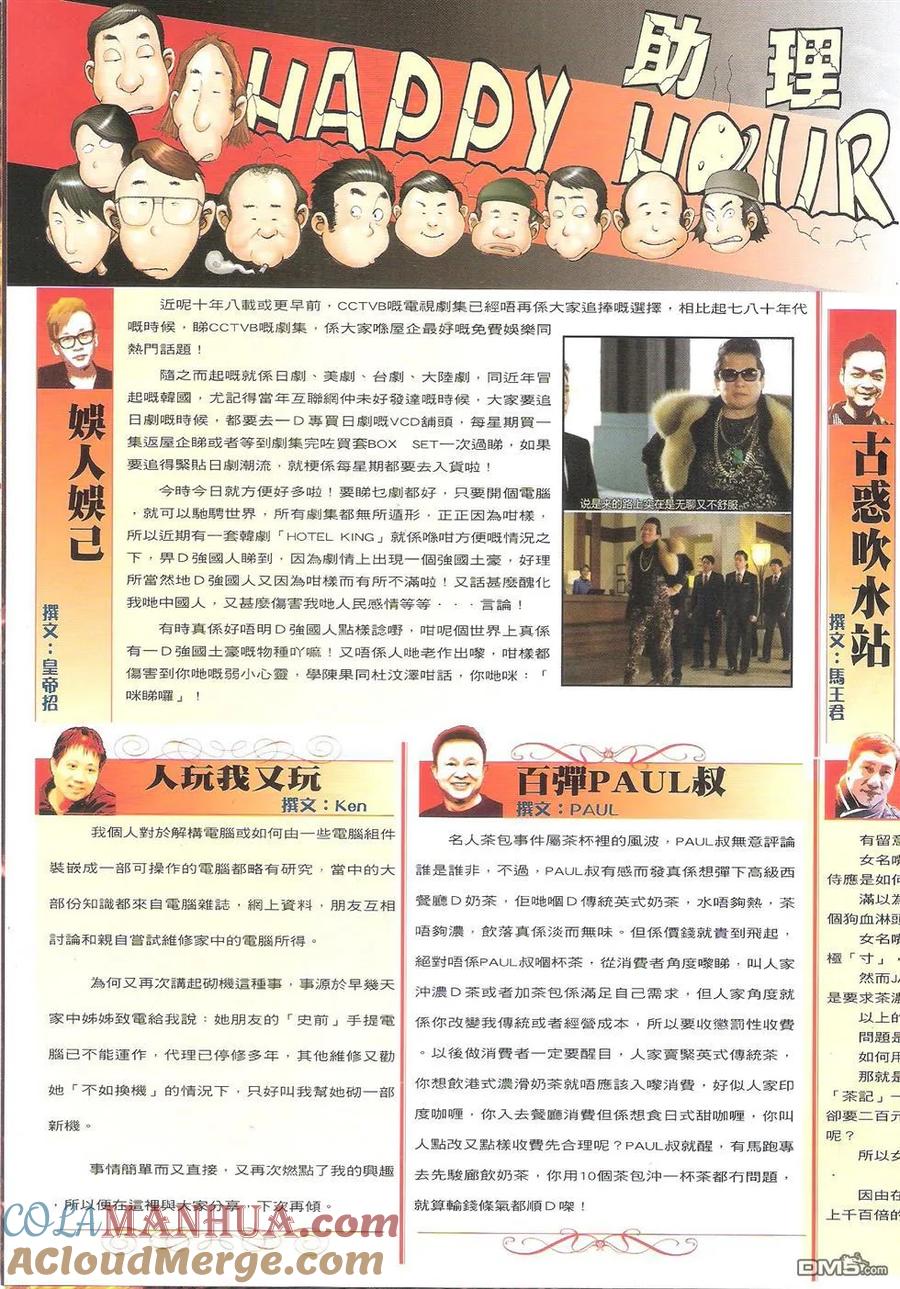 助理
HAPPY HOUR
娛人娛己
撰文：皇帝招
近呢十年八載或更早前，CCTVB嘅電視劇集已經唔再係大家追捧嘅選擇，相比起七八十年代
嘅時候，睇CCTVB嘅劇集，係大家喺屋企最好嘅免費娛樂同
熱門話題！
隨之而起嘅就係日劇、美劇、台劇、大陸劇，同近年冒
起嘅韓國，尤記得當年互聯網仲未好發達嘅時候，大家要追
日劇嘅時候，都要去一D專買日劇嘅VCD舖頭，每星期買一
集返屋企睇或者等到劇集完咗買套BOX SET一次過睇，如果
要追得緊貼日劇潮流，就梗係每星期都要去入貨啦！
今時今日就方便好多啦！要睇乜劇都好，只要開個電腦
，就可以馳騁世界，所有劇集都無所遁形，正正因為咁樣，
所以近期有一套韓劇「HOTEL KING」就係喺咁方便嘅情況之
下，畀D強國人睇到，因為劇情上出現一個強國土豪，好理
所當然地D強國人又因為咁樣而有所不滿啦！又話甚麼醜化
我哋中國人，又甚麼傷害我哋人民感情等等．．．言論！
有時真係好唔明D強國人點樣諗嘢，咁呢個世界上真係
有一D強國土豪嘅物種吖嘛！又唔係人哋老作出嚟，咁樣都
傷害到你哋嘅弱小心靈，學陳果同杜汶澤咁話，你哋咪：「
咪睇囉」！
说是来的路上实在是无聊又不舒服
古惑吹水站
撰文：馬王君
人玩我又玩
撰文：Ken
我個人對於解構電腦或如何由一些電腦組件
裝嵌成一部可操作的電腦都略有研究，當中的大
部份知識都來自電腦雜誌，網上資料，朋友互相
討論和親自嘗試維修家中的電腦所得。
為何又再次講起砌機這種事，事源於早幾天
家中姊姊致電給我說：她朋友的「史前」手提電
腦已不能運作，代理已停修多年，其他維修又勸
她「不如換機」的情況下，只好叫我幫她砌一部
新機。
事情簡單而又直接，又再次燃點了我的興趣
，所以便在這裡與大家分享，下次再傾。
百彈PAUL叔
撰文：PAUL
名人茶包事件屬茶杯裡的風波，PAUL叔無意評論
誰是誰非，不過，PAUL叔有感而發真係想彈下高級西
餐廳D奶茶，佢哋嗰D傳統英式奶茶，水唔夠熱，茶
唔夠濃，飲落真係淡而無味。但係價錢就貴到飛起，
絕對唔係PAUL叔嗰杯茶，從消費者角度嚟睇，叫人家
沖濃D茶或者加茶包係滿足自己需求，但人家角度就
係你改變我傳統或者經營成本，所以要收懲罰性收費
。以後做消費者一定要醒目，人家賣緊英式傳統茶，
你想飲港式濃滑奶茶就唔應該入嚟消費，好似人家印
度咖喱，你入去餐廳消費但係想食日式甜咖喱，你叫
人點改又點樣收費先合理呢？PAUL叔就醒，有馬跑專
去先駿廊飲奶茶，你用10個茶包沖一杯茶都冇問題，
就算輸錢條氣都順D㗎！
有留意
女名嘴
侍應是如何
滿以為
個狗血淋頭
女名嘴
極「寸」，
然而JA
是要求茶濃
以上的
問題是
如何用
那就是
「茶記」一
卻要二百元
呢？
所以女
．
因由在
上千百倍的
COLAMANHUA.com
AcloudMerge.com
DM5.com